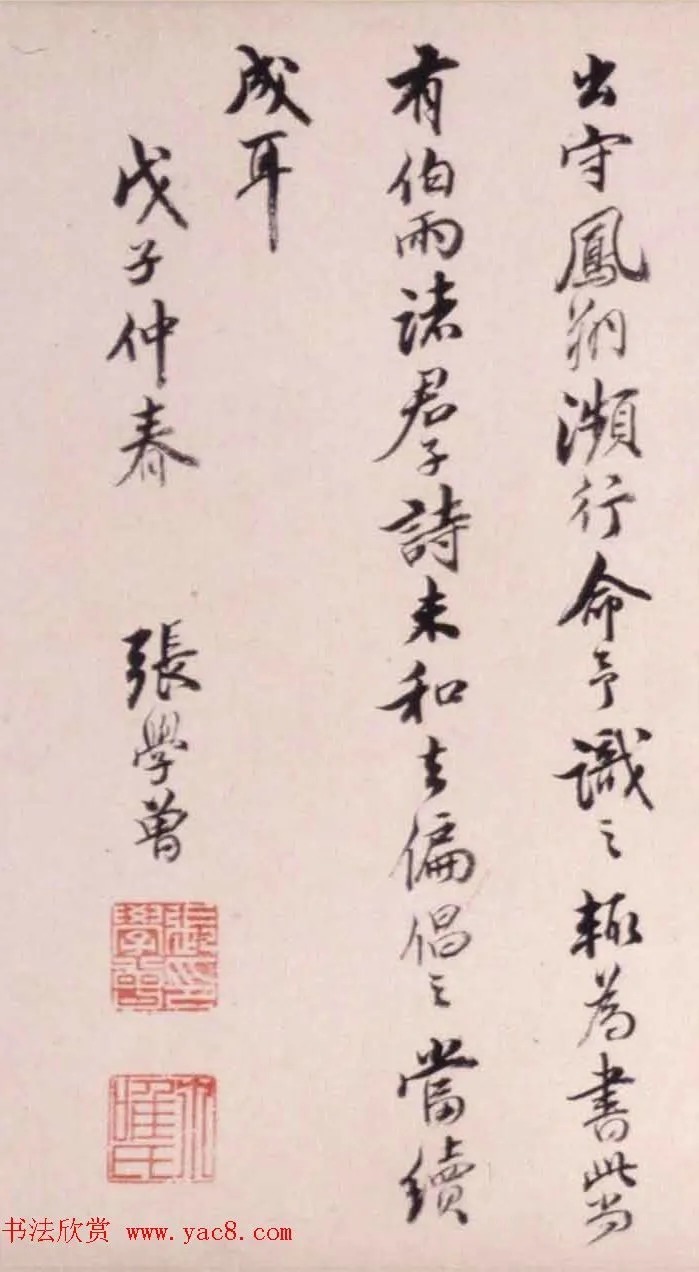 出守鳳翔瀕行命予識之輙為書此尚
有伯雨諸君子詩未和偏倡之當續
成耳
戊子仲春 張學曾
張學曾印
书法欣赏 www.yac8.com